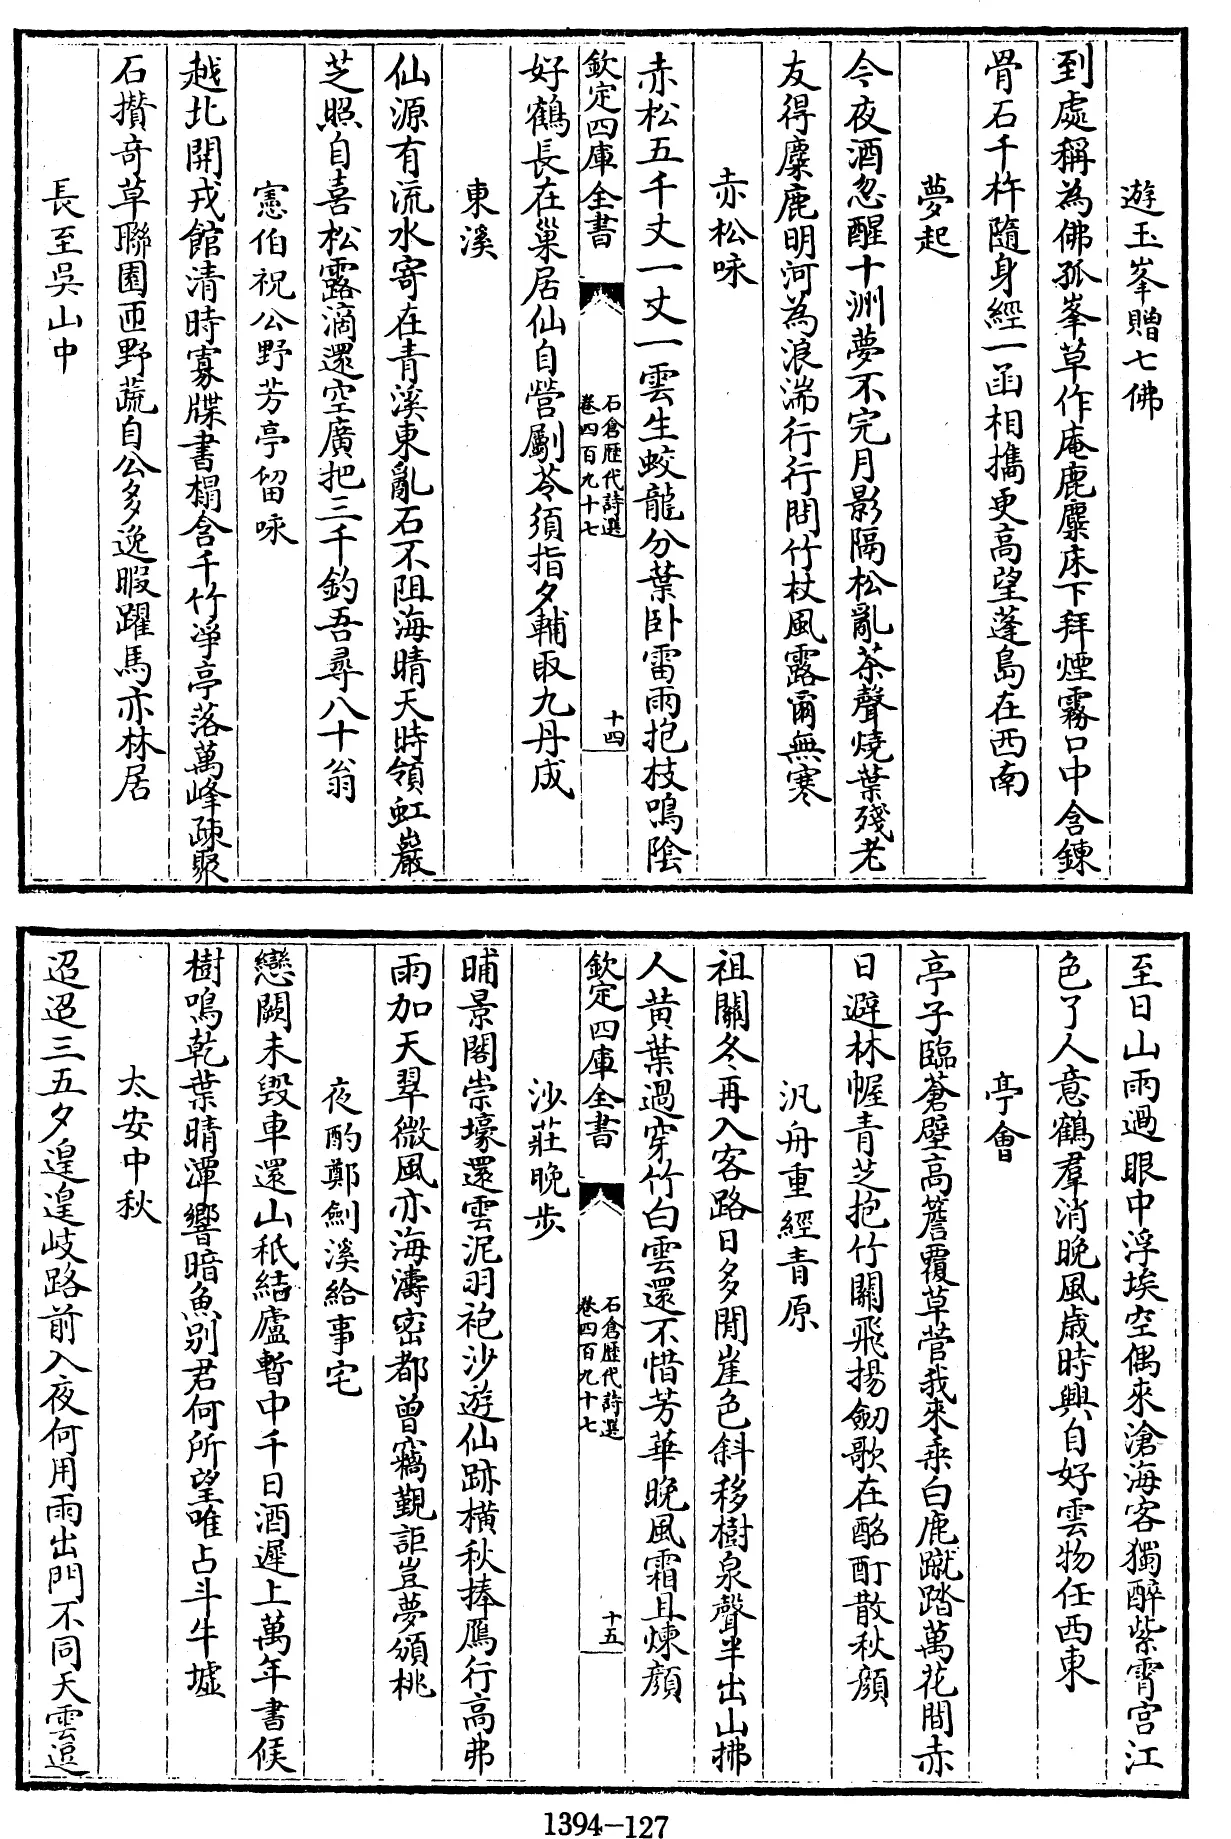 遊玉峯贈七佛
到處稱為佛孤峯草作庵鹿麋床下拜煙霧口中含鍊
骨石千杵隨身經一函相攜更高望蓬島在西南
夢起
今夜酒忽醒十洲夢不完月影隔松亂茶聲燒葉殘老
友得麋鹿明河為浪湍行行問竹杖風露爾無寒
赤松咏
赤松五千丈一丈一雲生蛟龍分葉卧雷雨抱枝鳴陰
欽定四庫全書
石倉歷代詩選
卷四百九十七
十四
好鶴長在巢居仙自營劚苓須指夕輔取九丹成
東溪
仙源有流水寄在青溪東亂石不阻海晴天時領虹巖
芝照自喜松露滴還空廣把三千釣吾尋八十翁
憲伯祝公野芳亭留咏
越北開戎館清時寡牒書榻含千竹淨亭落萬峰疎聚
石攢奇草聯園匝野蔬自公多逸暇躍馬亦林居
長至吳山中
至日山雨過眼中浮埃空偶來滄海客獨醉紫霄宮江
色了人意鶴羣消晚風歲時興自好雲物任西東
亭會
亭子臨蒼壁高簷覆草菅我來乘白鹿蹴踏萬花間赤
日避林幄青芝抱竹關飛揚劒歌在酩酊散秋顏
汎舟重經青原
祖關冬再入客路日多閒崖色斜移樹泉聲半出山拂
人黃葉過穿竹白雲還不惜芳華晚風霜且煉顏
欽定四庫全書
石倉歷代詩選
卷四百九十七
十五
沙莊晚步
晡景閣崇壕還雲泥羽袍沙遊仙跡橫秋捧鴈行高弗
雨加天翠微風亦海濤密都曾竊覲詎豈夢頒桃
夜酌鄭劍溪給事宅
戀闕未毀車還山秪結廬暫中千日酒遲上萬年書候
樹鳴乾葉晴潭響暗魚別君何所望唯占斗牛墟
太安中秋
迢迢三五夕遑遑岐路前入夜何用雨出門不同天雲逗
1394-127